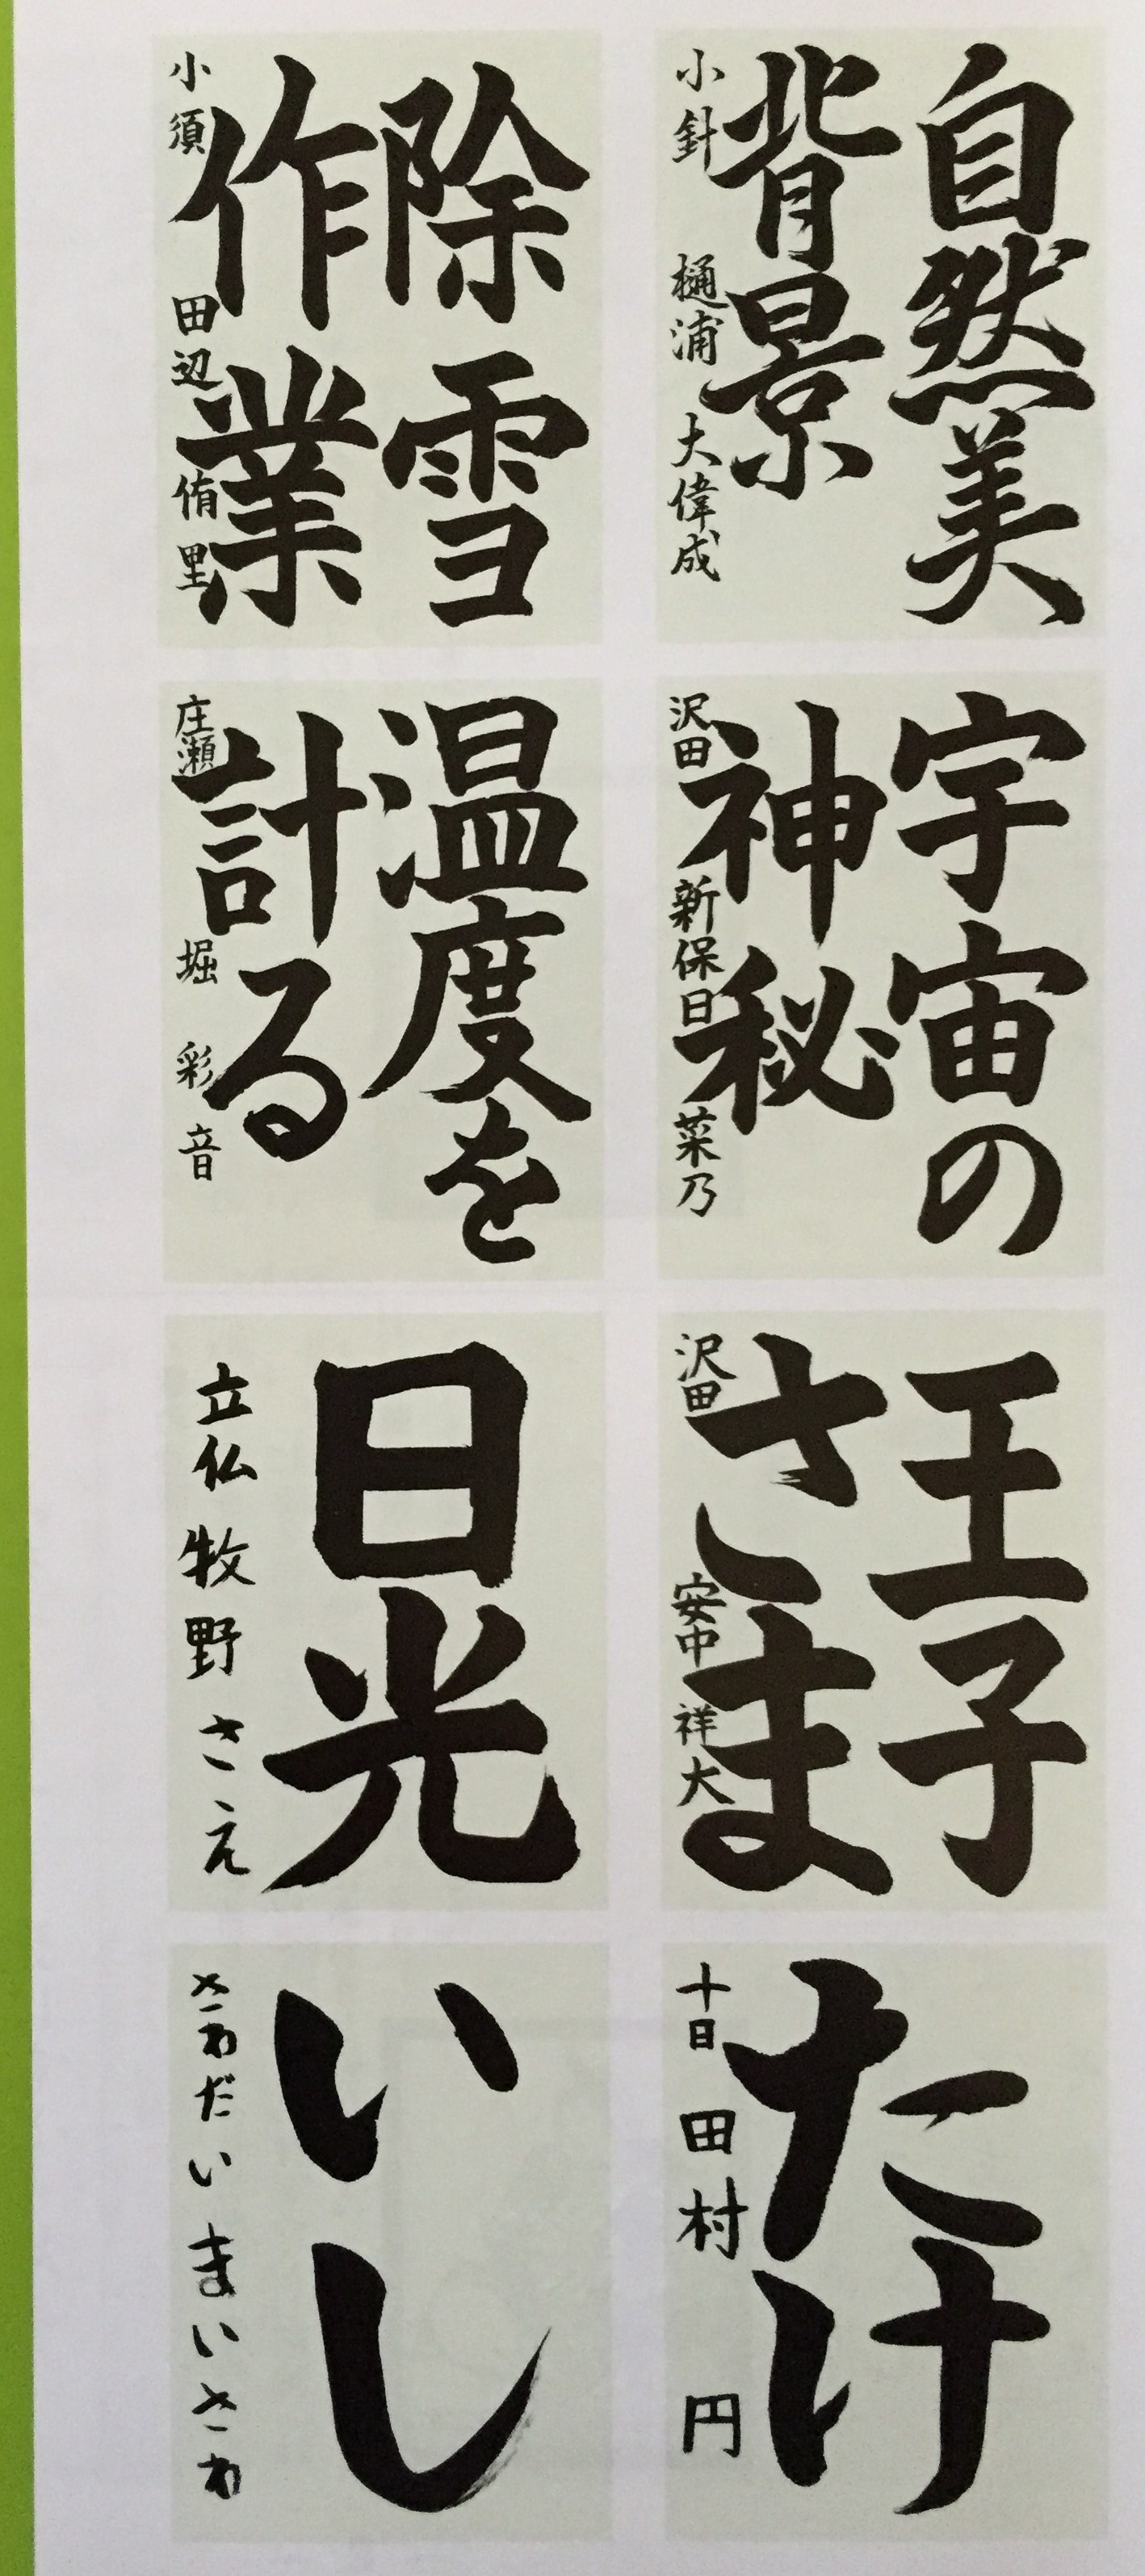 自然美
背景
小針 樋浦 大偉成
除雪
作業
小須 田辺 侑里
宇宙の
神秘
沢田 新保日菜乃
温度を
計る
庄瀬 堀 彩音
王子
さま
沢田 安中 祥大
日光
立仏 牧野さえ
たけ
十日 田村 円
いし
さわだ いまい さわ